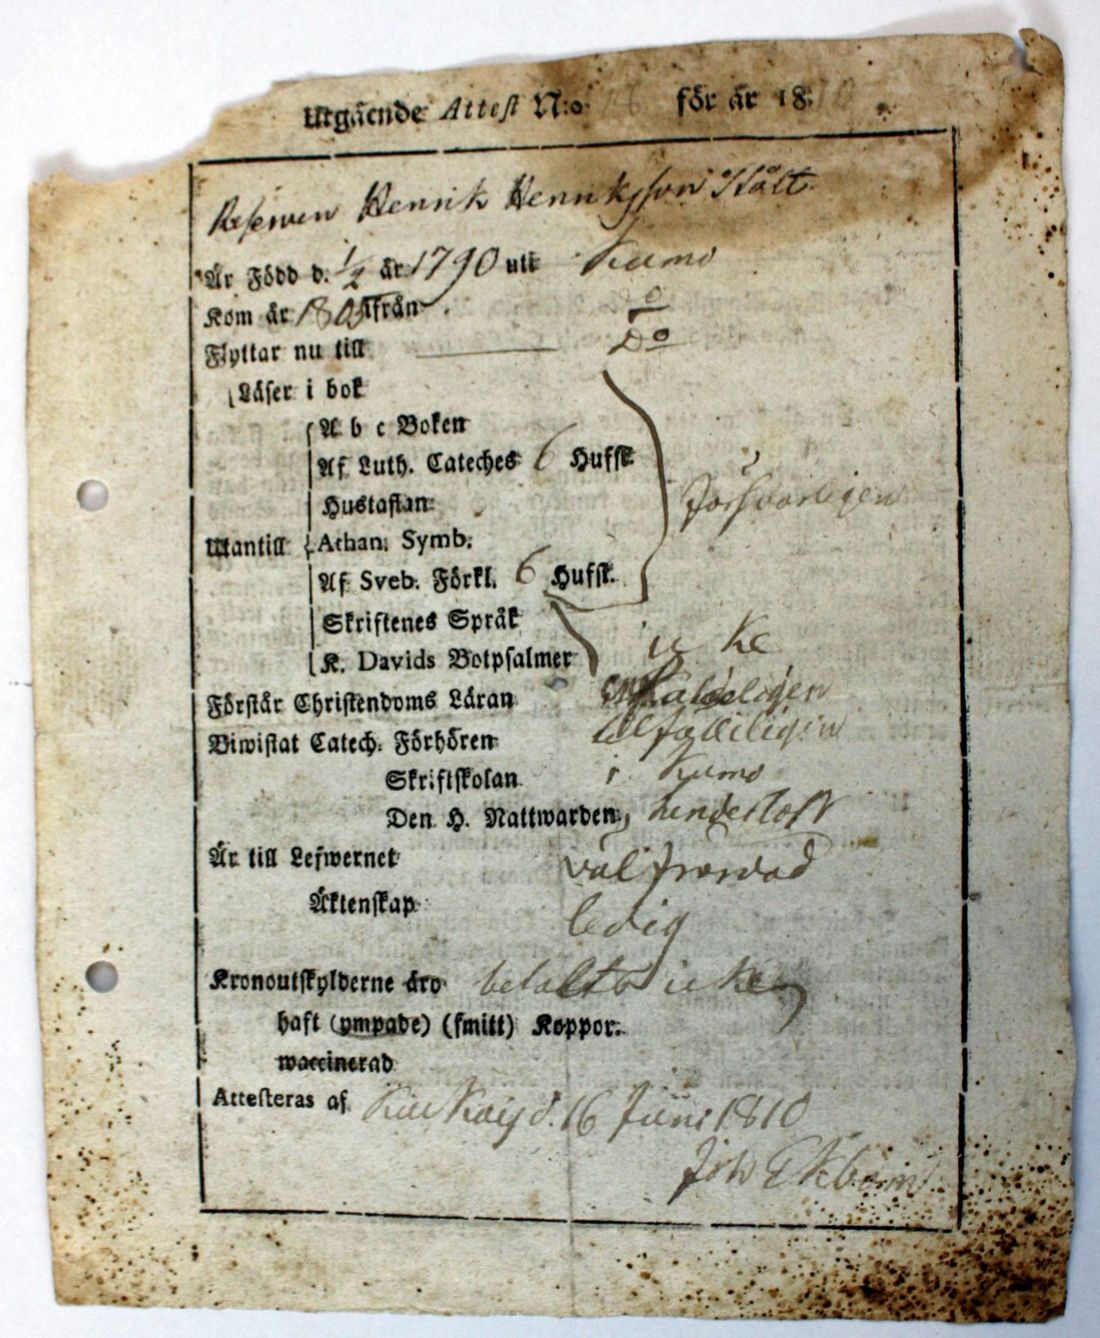 Utgående Attest N:o för år 1810
Reserven Henrik Henriksson Stålt
Är Född d. 1/2 år 1790 uti Kumo
Kom år 1805 ifrån Do
Flyttar nu till Do
Läser i bok
A b c Boken
Af Luth. Cateches 6 Hufst.
Hustaflan försvarligen
Utantill Athan. Symb.
Af Sveb. Förkl. 6 Hufst.
Skriftenes Språk
K. Davids Botpsalmer icke
Förstår Christendoms Läran enfaldeligen
Biwistat Catech. Förhören
Skriftskolan i Kumo
Den H. Nattwarden,
Är till Lefwernet väl frejdad
Äktenskap ledig
Kronoutskylderne äro betalte icke
haft (ympade) (smitt) Koppor.
waccinerad
Attesteras af d. 16 Junii 1810
Joh Ekbom